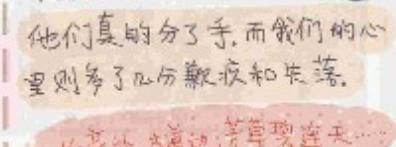 他们真的分了手,而我们的心
里则多了几分歉疚和失落.
芳草碧连天……